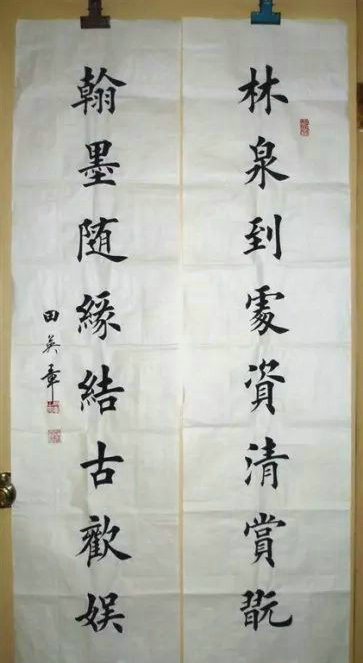 林泉到處資清賞翫
翰墨随緣結古歡娱
田英章